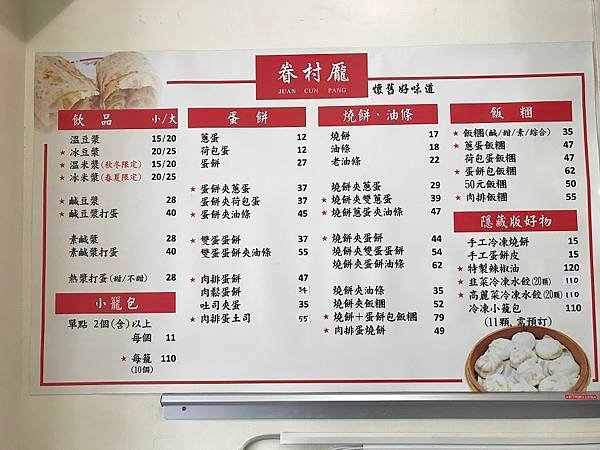 眷村龐
JUAN CUN PANG
懷舊好味道
飲品 小/大
溫豆漿 15/20
★冰豆漿 20/25
★溫米漿(秋冬限定) 15/20
★冰米漿(春夏限定) 20/25
★鹹豆漿 28
★鹹豆漿打蛋 40
素鹹漿 28
素鹹漿打蛋 40
熱漿打蛋(甜/不甜) 28
小籠包
單點 2個(含)以上
每個 11
★每籠 110
(10個)
蛋餅
蔥蛋 12
荷包蛋 12
蛋餅 27
★蛋餅夾蔥蛋 37
蛋餅夾荷包蛋 37
★蛋餅夾油條 45
★雙蛋蛋餅 37
雙蛋蛋餅夾油條 55
★肉排蛋餅 47
肉鬆蛋餅 34
吐司夾蛋 35
★肉排蛋土司 55
燒餅、油條
燒餅 17
油條 18
老油條 22
燒餅夾蔥蛋 29
★燒餅夾雙蔥蛋 39
燒餅蔥蛋夾油條 47
★燒餅夾蛋餅 44
燒餅夾雙蛋蛋餅 54
燒餅夾蛋餅油條 62
燒餅夾油條 35
燒餅夾飯糰 52
★燒餅+蛋餅包飯糰 79
★肉排蛋燒餅 49
飯糰
★飯糰(鹹/甜/素/綜合) 35
★蔥蛋飯糰 47
荷包蛋飯糰 47
★蛋餅包飯糰 62
50元飯糰 50
★肉排飯糰 55
隱藏版好物
手工冷凍燒餅 15
手工蛋餅皮 15
★特製辣椒油 120
★韭菜冷凍水餃(20顆) 110
★高麗菜冷凍水餃(20顆) 110
冷凍小籠包 110
(11顆,需預訂)